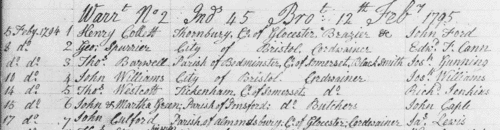 Warrt. No 2 Ind 45 Brot. 12th Feby 1795
5 Feby. 1794 1 Henry Collett Thornbury, Co. of Glocester Brazier &c John Ford
8 do. 2 Geo. Spurrier City of Bristol Cordwainer Edwd. T. Cann
do do. 3 Thos. Barwell Parish of Bedminster, Co. of Somerset, Black Smith Jos. Gunning
10 do. 4 John Williams City of Bristol Cordwainer Jos. Williams
14 do 5 Thos. Westcott Tickenham, Co. of Somerset do Richd. Jenkins
15 do 6 John & Martha Green, Parish of Pensford, do Butchers John Caple
17 do 7 John Culford Parish of Almondsbury, Co. of Glocester, Cordwainer Jas. Lewis